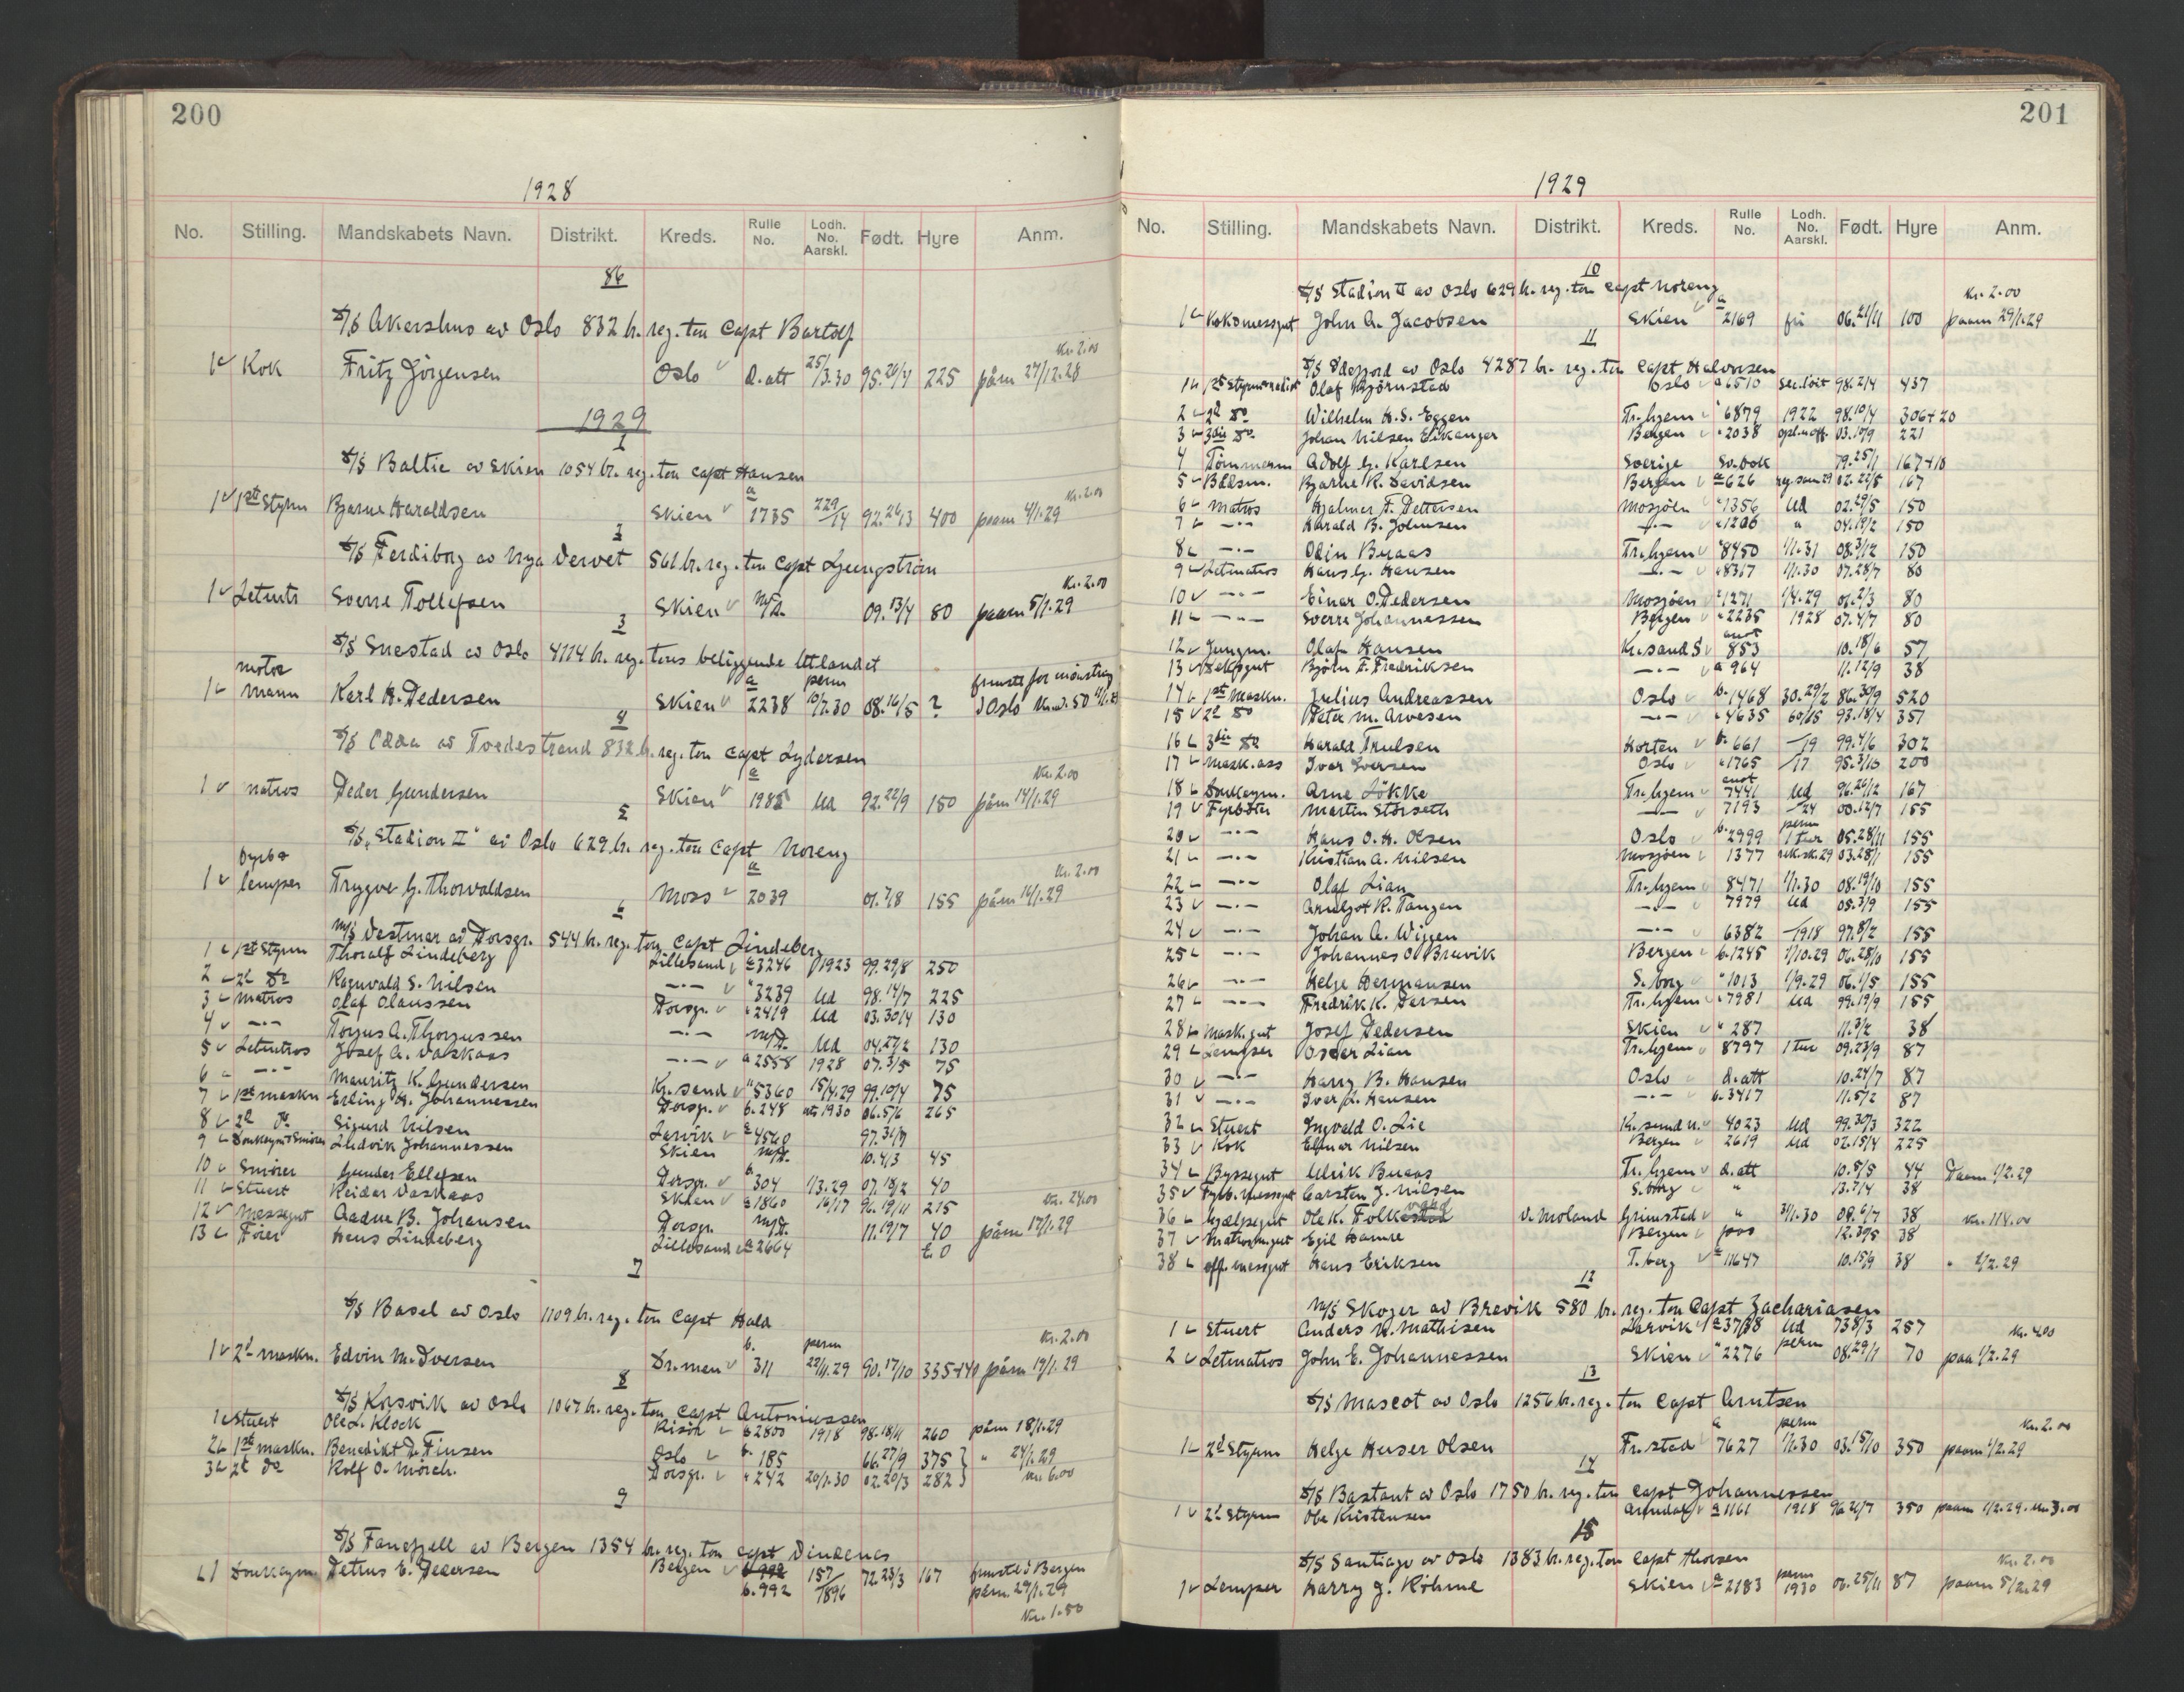 200
1928
No. Stilling. Mandskabets Navn. Distrikt. Kreds. Rulle No. Lodh. No. Aarskl. Født. Hyre Anm.
86
S/S Akershus av Oslo 832 br. reg. ton Capt Bartolf
Kr. 2.00
1 Kok Fritz Jörgensen Oslo d. att 25/3.30 95. 20/4 225 påm 27/12.28
1929
1
S/S Baltic av Skien 1054 br. reg. ton capt Hansen
Kr. 2.00
1 1ste Styrm Bjarne Haraldsen Skien a 1735 229/14 92. 26/3 400 paam 4/1.29
2
S/S Ferdiborg av Nya Vervet 561 br. reg. ton Capt Ljungström
Kr. 2.00
1 Letmtr Sverre Tollefsen Skien m/A. 09. 13/4 80 paam 5/1.29
3
S/S Snestad av Oslo 4114 br. reg. tons beliggende Utlandet
1 motor mann Karl K. Pedersen Skien a 2238 perm 10/7.30 08. 16/5 ? i Oslo
4
S/S Odda av Tvedestrand 832 br. reg. ton Capt Lydersen
Kr. 2.00
1 matros Peder Gundersen Skien a 1985 Ud 92. 22/9 150 påm 14/1.29
5
S/S "Stadion II" av Oslo 629 br. reg. ton Capt Noreng
Kr. 2.00
1 fyrb & lemper Trygve G. Thorvaldsen Moss a 2039 01. 7/8 155 påm 16/1.29
6
M/S Vestmar av Porsgr. 544 br. reg. ton Capt Lindeberg
1 1st Styrm Thoralf Lindeberg Lillesand a 3246 1923 99. 29/8 250
2 2d do Ragnvald S. Nilsen —"— " 3239 Ud 98. 14/7 225
3 matros Olaf Olaussen Porsgr. " 2419 Ud 03. 30/4 130
4 —"— Torjus A. Thorjussen —"— m/A. Ud 04. 27/2 130
5 Letmtros Josef A. Valskaas —"— a 2558 1928 07. 3/5 75
6 —"— Mauritz K. Gundersen Kr. sand " 5360 15/4.29 99. 10/4 75
7 1st maskn Erling H. Johannessen Porsgr. b. 248 1930 06. 5/6 265
8 2d do Sigurd Nilsen Larvik a 4560 97. 31/7
9 Donkeym & Smører Ludvik Johannessen Skien m/A. 10. 4/3 45
10 Smører Gunder Ellefsen Porsgr. b. 304 1/3.29 07. 18/2 40
11 Stuert Reidar Vaskaas Skien a 1860 16/17 96. 19/11 215 Kr. 24.00
12 Messegut Aadne B. Johansen Porsgr. m/A. 11. 19/7 40 påm 17/1.29
13 Fører Hans Lindeberg Lillesand a 2664 t. 0
7
S/S Basel av Oslo 1109 br. reg. ton Capt Hald
Kr. 2.00
1 2d maskn. Edvin M. Iversen Dr.men b. 311 perm 22/11.29 90. 17/10 335+40 påm 19/1.29
8
S/S Korsvik av Oslo 1067 br. reg. ton Capt Antoniussen
1 Stuert Ole L. Klock Risør a 2800 1918 98. 18/11 260 påm 18/1.29
2 1st maskn. Benedikt D. Finsen Oslo b. 185 66. 27/9 375 " 24/1.29
3 2d do Rolf O. Mörch. Porsgr. " 242 20/1.30 02. 20/3 282 Kr. 6.00
9
S/S Fanefjell av Bergen 1354 br. reg. ton capt Dindenes
1 Donkeym. Petrus E. Pedersen Bergen b. 992 157/1896 72. 23/3 167 i Bergen
b. 992 påm. 29/1.29
Kr. 1.50
201
1929
No. Stilling. Mandskabets Navn. Distrikt. Kreds. Rulle No. Lodh. No. Aarskl. Født. Hyre Anm.
10
S/S Stadion II av Oslo 629 br. reg. ton Capt Noreng
Kr. 2.00
1 Koksmessgut John A. Jacobsen Skien a 2169 fri 06. 21/11 100 paam 29/1.29
11
S/S Idefjord av Oslo 4287 br. reg. ton Capt Halvorsen
1 1st Styrm Olaf Bjørnstad Oslo a 6510 98. 2/4 437
2 2d do Wilhelm H. S. Eggen Tr.hjem " 6879 1922 98. 10/4 306+20
3 3die do Johan Nilsen Eikanger Bergen " 2038 03. 10/9 221
4 Tömmerm Adolf G. Karlsen Sverige Sv. bok 79. 25/1 167+10
5 Baadsm. Bjarne K. Davidsen Bergen a 626 02. 22/5 167
6 matros Hjalmer F. Pettersen Mosjøen " 1356 Ud 02. 29/5 150
7 —"— Harald B. Johnsen —"— " 1206 " 04. 19/2 150
8 —"— Odin Buaas Tr.hjem " 8450 1/1.31 08. 3/12 150
9 Letmatros Hans G. Hansen —"— " 8317 1/1.30 07. 28/7 80
10 —"— Einar O. Pedersen Mosjøen " 1271 1/4.29 02. 2/3 80
11 —"— Sverre Johannessen Bergen " 2235 1928 07. 4/7 80
12 Jungm. Olaf Hansen Kr.sand S anot 853 10. 18/6 57
13 Dæksgut Bjørn F. Fredriksen —"— a 964 11. 12/9 38
14 1st Maskn. Julius Andreassen Oslo b. 1468 30. 29/2 86. 30/9 520
15 2d do Peter M. Arvesen —"— " 4635 60/15 93. 18/4 351
16 3die do Harald Trulsen Horten b. 661 —19 99. 4/6 302
17 Mask. ass Ivar Iversen Oslo " 1765 —17 95. 3/10 200
18 Donkeym. Arne Løkke Tr.hjem anot 7441 Ud 96. 26/12 167
19 Fyrböter Martin Störseth —"— 7193 —24 00. 12/7 155
20 —"— Hans O. H. Olsen Oslo b. 2999 perm 1 tur 05. 28/11 155
21 —"— Kristian A. Nilsen Mosjøen 1377 03. 28/1 155
22 —"— Olaf Lian Tr.hjem 8471 1/1.30 08. 19/10 155
23 —"— Arnljot R. Tangen —"— 7979 Ud 05. 3/9 155
24 —"— Johan A. Wiggen —"— 6382 —1918 97. 8/2 155
25 —"— Johannes O. Bruvik Bergen b. 1245 1/10.29 06. 28/10 155
26 —"— Helge Hermansen S.borg " 1013 1/9.29 06. 1/5 155
27 —"— Fredrik K. Larsen Tr.hjem " 7981 Ud 99. 19/9 155
28 Mask.gut Josef Pedersen Skien " 287 11. 3/2 38
29 Lemper Oscar Lian Tr.hjem 8797 1 tur 09. 23/9 87
30 —"— Harry B. Hansen Oslo d. att 10. 24/7 87
31 —"— Ivar L. Hansen —"— b. 3417 11. 5/2 87
32 Stuert Ingvald O. Lie Kr.sund N. 4023 Ud 99. 30/3 322
33 Kok Elmar Nilsen Bergen 2619 Ud 02. 15/4 225
34 Byssegut Ulrik Buaas Tr.hjem d. att 10. 5/5 44 Paam 1/2.29
35 Fyrb. messgut Carsten J. Nilsen S.borg " 13. 7/4 38
36 hjælpegut Ole K. Folke V. Moland Grimstad " 31/1.30 09. 6/7 38 Kr. 118.00
37 Matrosmgut Egil Hamre Bergen pas 12. 30/5 38
38 off. messgut Hans Eriksen T.berg a 11647 10. 15/9 38 " 2/2.29
12
M/S Skoger av Brevik 580 br. reg. ton Capt Zachariasen
1 Stuert Anders K. Mathisen Larvik a 3788 Ud 73 8/3 257 Kr. 4.00
2 Letmatros John E. Johannessen Skien " 2276 perm 08. 29/1 70 paa 1/2.29
13
S/S Mascot av Oslo 1256 br. reg. ton Capt Arntsen
Kr. 2.00
1 2d Styrm Helge Huser Olsen Fr.stad a 7627 perm 1/1.30 03. 15/10 350 paam 1/2.29
14
S/S Bastant av Oslo 1750 br. reg. ton Capt Johannessen
1 2d Styrm Ole Kristensen Arendal a 1161 1918 96 21/7 350 paam 1/2.29. Kr. 3.00
15
S/S Santiago av Oslo 1383 br. reg. ton Capt Thorsen
Kr. 2.00
1 Lemper Harry J. Röhme Skien a 2183 perm 1930 06. 25/11 87 paam 5/2.29